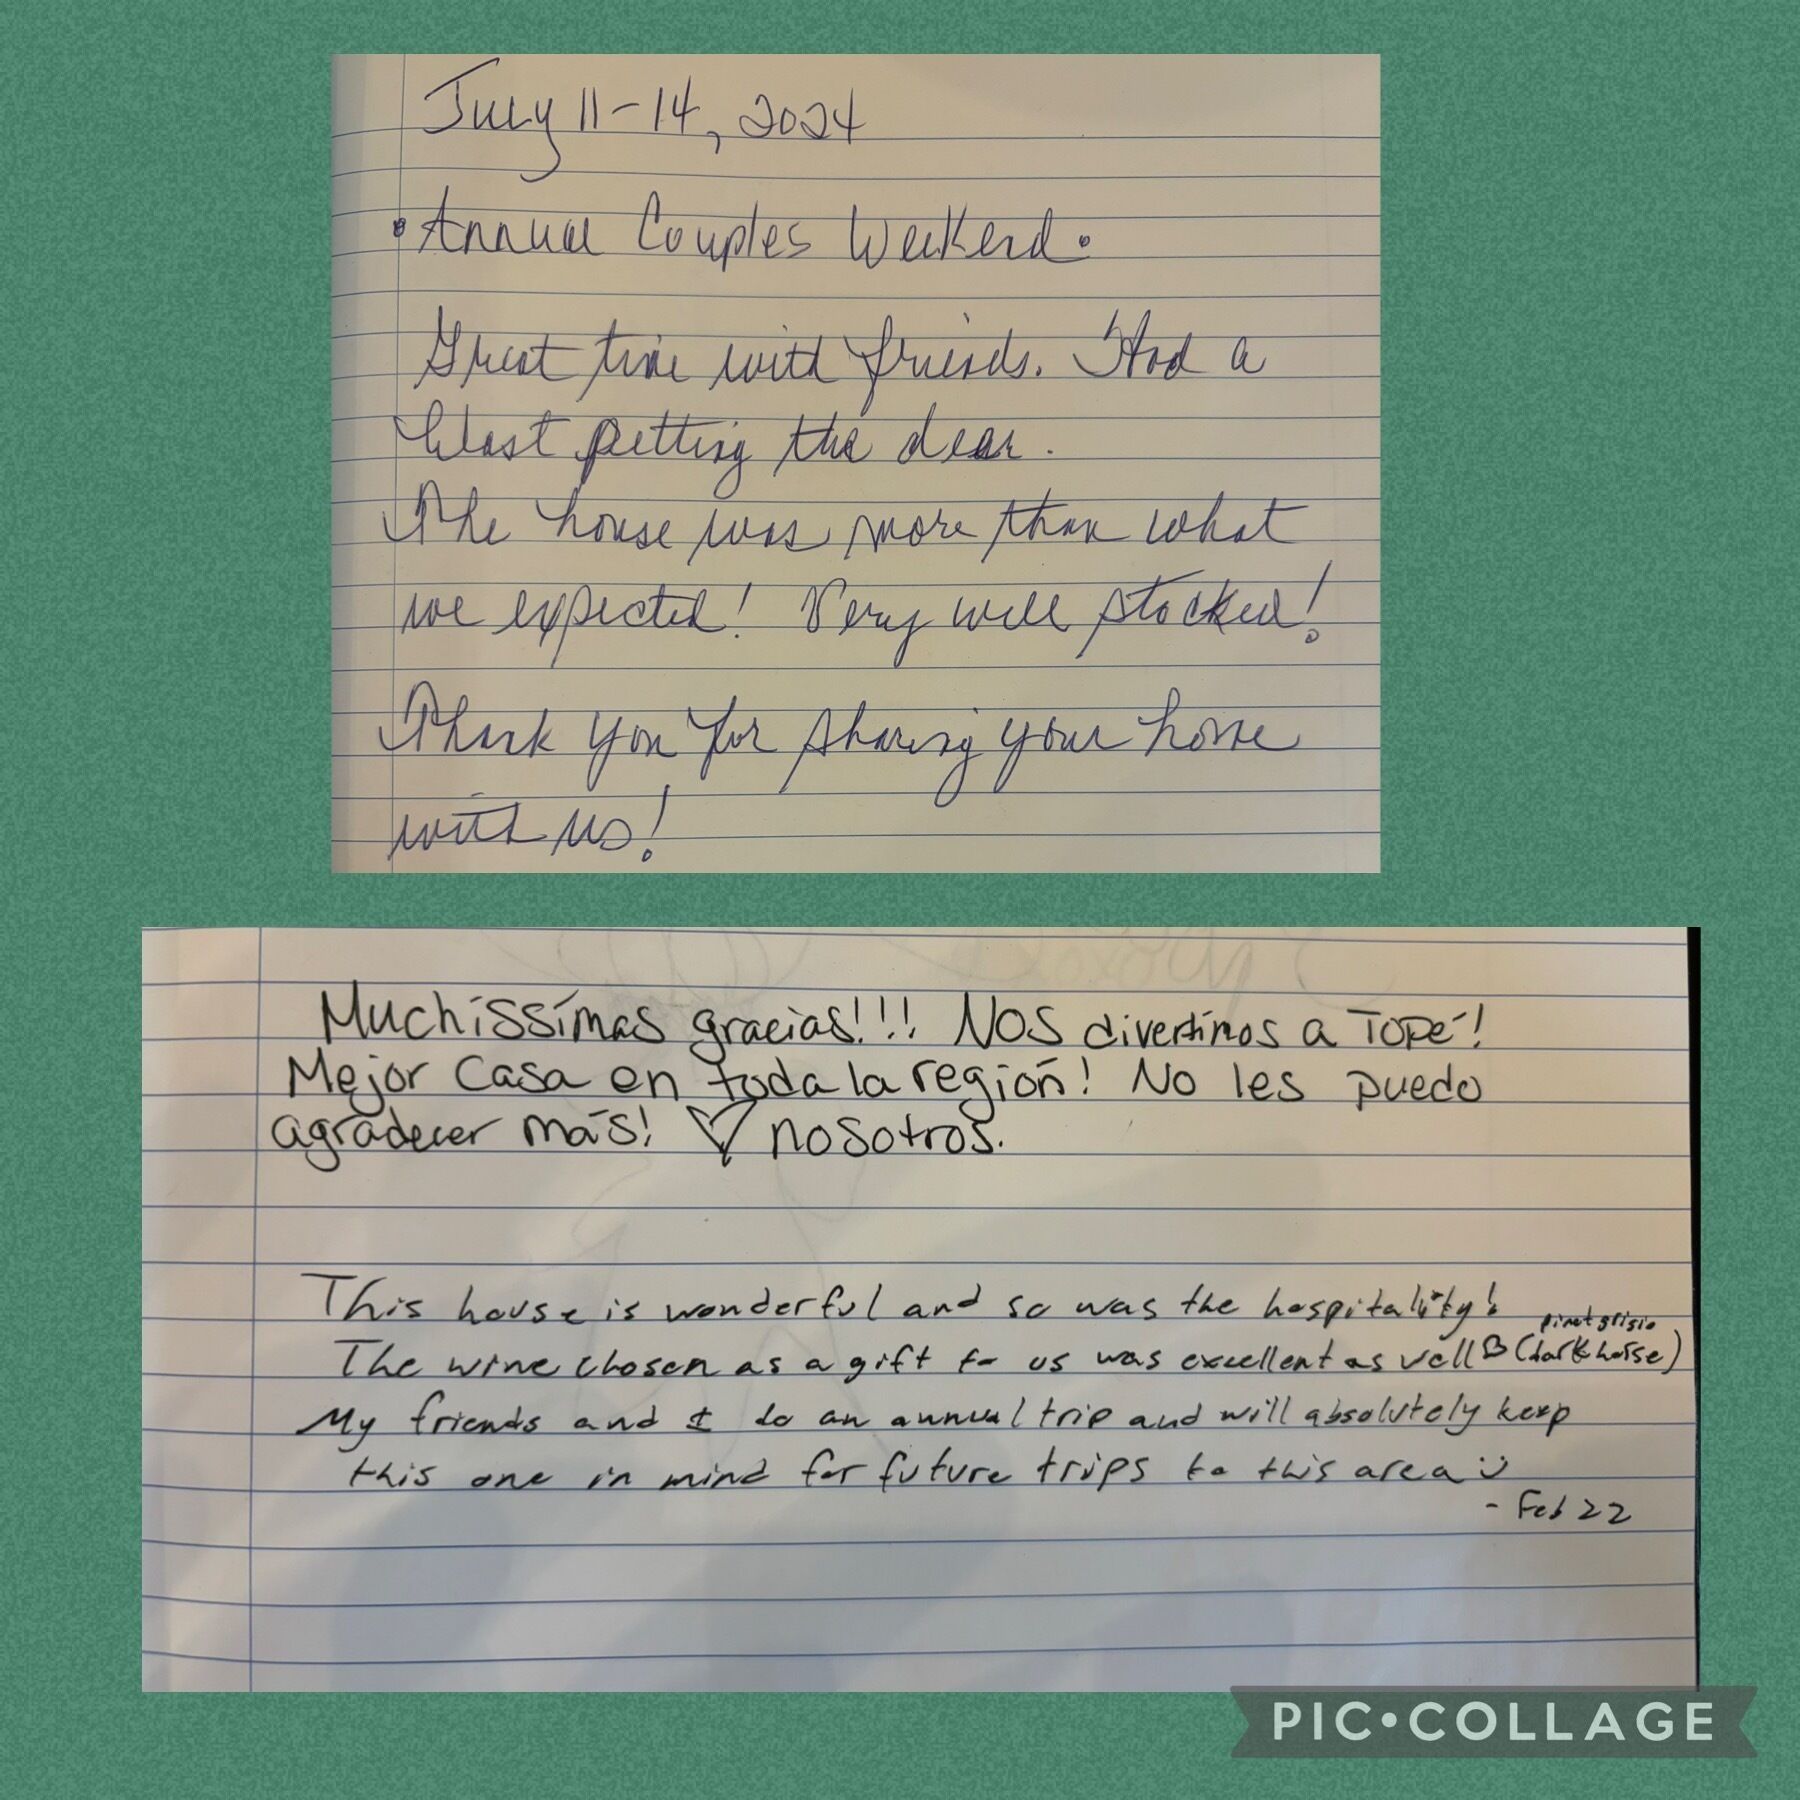 July 11-14, 2024
• Annual Couples Weekend •
Great time with friends. Had a
blast petting the dear.
The house was more than what
we expected! Very well stocked!
Thank you for sharing your home
with us!
Muchíssímas gracias!!! Nos divertimos a Topé!
Mejor Casa en toda la región! No les puedo
agradecer más! ♡ nosotros.
This house is wonderful and so was the hospitality!
pinot grisio
The wine chosen as a gift to us was excellent as well (dark horse)
My friends and I do an annual trip and will absolutely keep
this one in mind for future trips to this area :)
- Feb 22
PIC•COLLAGE